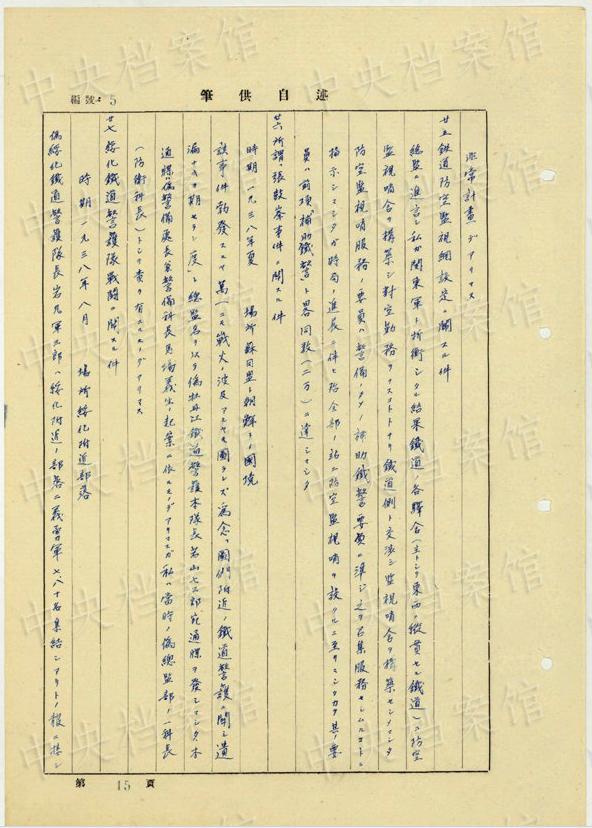 筆供自述
編號 5
非常計畫デアリマス
廿五 鉄道防空監視網設定ニ関スル件
總監ノ進言ニ私ガ関東軍ト折衝シタル結果鐵道ノ各驛舎(主トシテ東西ノ縦貫セル鐵道)ニ防空
監視哨舎ヲ構築シ對空勤務ヲ鐵道側ト交渉シ監視哨舎ヲ構築セシメマシタ
防空監視哨服務ノ要員ハ警備ノタメノ補助鐵警要員ニ準ジ之ヲ召集服務セシムル
指示シマシタガ時局ノ進展ニ伴ヒ殆全部ノ站ニ防空監視哨ヲ設クルニ至リマシタカラ其ノ要
員ハ前項ノ補助鐵警ト畧同数(二万)ニ達シマシタ
廿六 所謂張鼓峯事件ニ関スル件
時期 一九三八年夏 場所 蘇同盟ト朝鮮トノ國境
該事件勃發スルヤ萬一ニモ戰火ノ波及ヲ圖ラレズ為念圖們附近ノ鐵道警護ニ関シ遺
漏ナキヲ期セラレ度シト總監名ヲ以テ偽牡丹江鐵道警護本隊長若山七三郎宛通牒ヲ發シマシタ、本
通牒ハ偽警備處長兼警備科長馬場義生ノ起案ニ依ルモノデアリマスガ私ハ當時ノ偽總監部ノ一科長
(防衛科長)トシテ責ヲ有スルモノデアリマス
廿七 綏化鐵道警護隊戰鬪ニ関スル件
時期 一九三八年八月 場所 綏化附近部落
偽綏化鐵道警護隊長岩九軍二郎ハ綏化附近ノ部落ニ義勇軍七八十名集結シアリトノ報ニ接シ
第 15 頁
中央档案馆